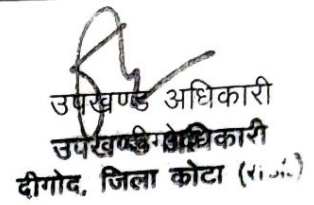 उपखण्ड अधिकारी
उपखण्ड अधिकारी
दीगोद, जिला कोटा